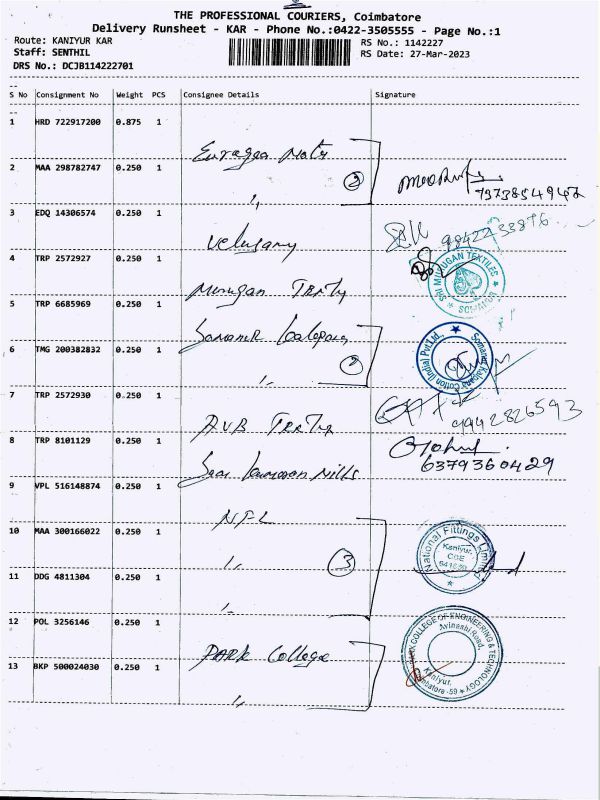 THE PROFESSIONAL COURIERS, Coimbatore
Delivery Runsheet - KAR - Phone No.:0422-3505555 - Page No.:1
Route: KANIYUR KAR
RS No.: 1142227
Staff: SENTHIL
RS Date: 27-Mar-2023
DRS No.: DCJB114222701
S No Consignment No Weight PCS Consignee Details Signature
1 HRD 722917200 0.875 1
2 MAA 298782747 0.250 1
②
3 EDQ 14306574 0.250 1
Velusamy
4 TRP 2572927 0.250 1
Murugan
SRI MURUGAN TEXTILES
SOMANUR
5 TRP 6685969 0.250 1
6 TMG 200382832 0.250 1
②
Cotton (India) Pvt.Ltd.,
7 TRP 2572930 0.250 1
AVB
9942826593
8 TRP 8101129 0.250 1
Mills
6379360429
9 VPL 516148874 0.250 1
NFL
10 MAA 300166022 0.250 1
③
National Fittings Limited
Kaniyur,
CBE
11 DDG 4811304 0.250 1
12 POL 3256146 0.250 1
PARK College
PARK COLLEGE OF ENGINEERING & TECHNOLOGY
Avinashi Road,
Kaniyur,
Coimbatore -59
13 BKP 500024030 0.250 1